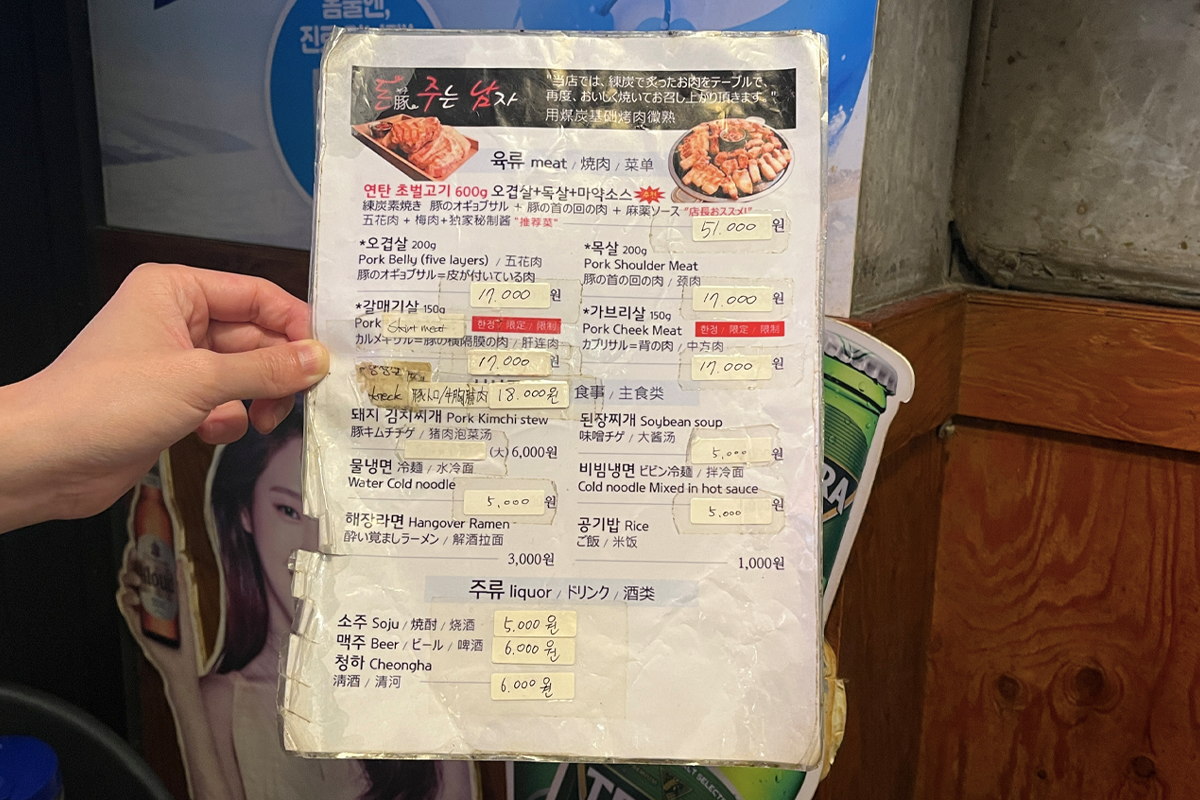 돈豚 주는 남자
"当店では、練炭で炙ったお肉をテーブルで、
再度、おいしく焼いてお召し上がり頂きます。"
用煤炭基础烤肉微熟
육류 meat / 焼肉 / 菜单
연탄 초벌고기 600g 오겹살+목살+마약소스
練炭素焼き 豚のオギョプサル + 豚の首の回の肉 + 麻薬ソース "店長おススメ!"
五花肉 + 梅肉+独家秘制酱 "推荐菜"
51.000 원
*오겹살 200g
Pork Belly (five layers) / 五花肉
豚のオギョプサル=皮が付いている肉
17.000 원
*목살 200g
Pork Shoulder Meat
豚の首の回の肉 / 颈肉
17.000 원
*갈매기살 150g
Pork Skirt meat 한정 / 限定 / 限制
カルメギサル=豚の横隔膜の肉 / 肝连肉
17.000 원
*가브리살 150g
Pork Cheek Meat 한정 / 限定 / 限制
カブリサル=背の肉 / 中方肉
17.000 원
豚トロ/牛胸腩肉 18.000원
食事 / 主食类
돼지 김치찌개 Pork Kimchi stew
豚キムチチゲ / 猪肉泡菜汤
(大) 6,000원
된장찌개 Soybean soup
味噌チゲ / 大酱汤
5.000 원
물냉면 冷麺 / 水冷面
Water Cold noodle
5.000 원
비빔냉면 ビビン冷麺 / 拌冷面
Cold noodle Mixed in hot sauce
5.000 원
해장라면 Hangover Ramen
酔い覚ましラーメン / 解酒拉面
3,000원
공기밥 Rice
ご飯 / 米饭
1,000원
주류 liquor / ドリンク / 酒类
소주 Soju / 焼酎 / 烧酒 5.000 원
맥주 Beer / ビール / 啤酒 6.000 원
청하 Cheongha
清酒 / 清河 6.000 원